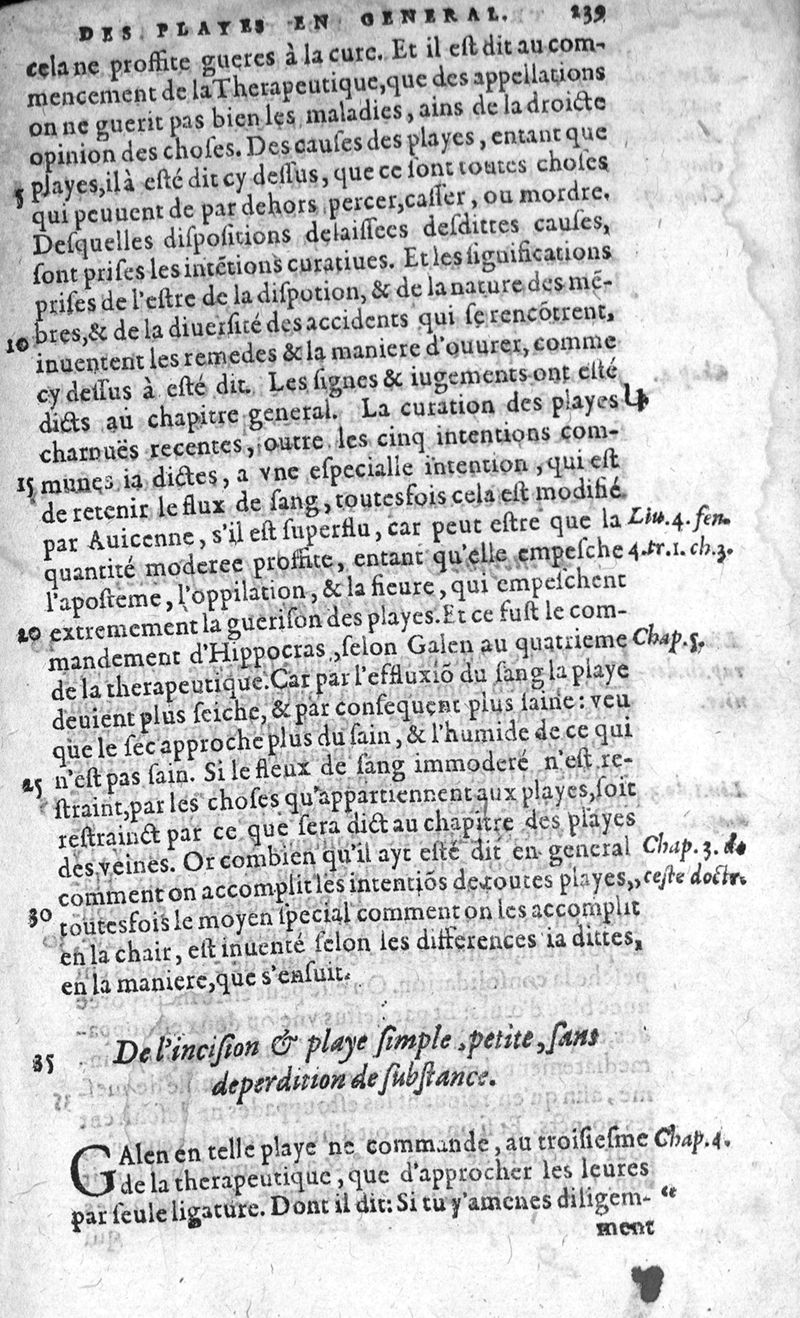 DES PLAYES EN GENERAL. 239
cela ne proffite gueres à la cure. Et il eſt dit au com-
mencement de la Therapeutique, que des appellations
on ne guerit pas bien les maladies, ains de la droicte
opinion des choſes. Des cauſes des playes, entant que
5 playes, il à eſté dit cy deſſus, que ce ſont toutes choſes
qui peuuent de par dehors percer, caſſer, ou mordre.
Deſquelles diſpoſitions delaiſſees deſdittes cauſes,
ſont priſes les intẽtions curatiues. Et les ſignifications
priſes de l'eſtre de la diſpotion, & de la nature des mẽ-
10 bres, & de la diuerſité des accidents qui ſe rencõtrent,
inuentent les remedes & la maniere d'ouurer, comme
cy deſſus à eſté dit. Les ſignes & iugements ont eſté
dicts au chapitre general. La curation des playes
charnuës recentes, outre les cinq intentions com-
15 munes ia dictes, a vne eſpecialle intention, qui eſt
de retenir le flux de ſang, toutesfois cela eſt modifié
par Auicenne, s'il eſt ſuperflu, car peut eſtre que la Liu. 4. fen.
quantité moderee proffite, entant qu'elle empeſche 4. tr. 1. ch. 3.
l'apoſteme, l'oppilation, & la fieure, qui empeſchent
20 extremement la gueriſon des playes. Et ce fuſt le com-
mandement d'Hippocras, ſelon Galen au quatrieme Chap. 5.
de la therapeutique. Car par l'effluxiõ du ſang la playe
deuient plus ſeiche, & par conſequent plus ſaine: veu
que le ſec approche plus du ſain, & l'humide de ce qui
25 n'eſt pas ſain. Si le fleux de ſang immoderé n'eſt re-
ſtraint, par les choſes qu'appartiennent aux playes, ſoit
reſtrainct par ce que ſera dict au chapitre des playes
des veines. Or combien qu'il ayt eſté dit en general Chap. 3. de
comment on accomplit les intentiõs de toutes playes, ceſte doctr.
30 toutesfois le moyen ſpecial comment on les accomplit
en la chair, eſt inuenté ſelon les differences ia dittes,
en la maniere, que s'enſuit.
35 De l'inciſion & playe ſimple, petite, ſans
deperdition de ſubſtance.
GAlen en telle playe ne commande, au troiſieſme Chap. 4.
de la therapeutique, que d'approcher les leures
par ſeule ligature. Dont il dit: Si tu y'amenes diligem- “
ment